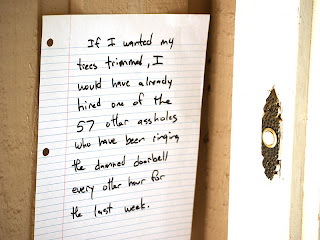 If I wanted my
trees trimmed, I
would have already
hired one of the
57 other assholes
who have been ringing
the damned doorbell
every other hour for
the last week.